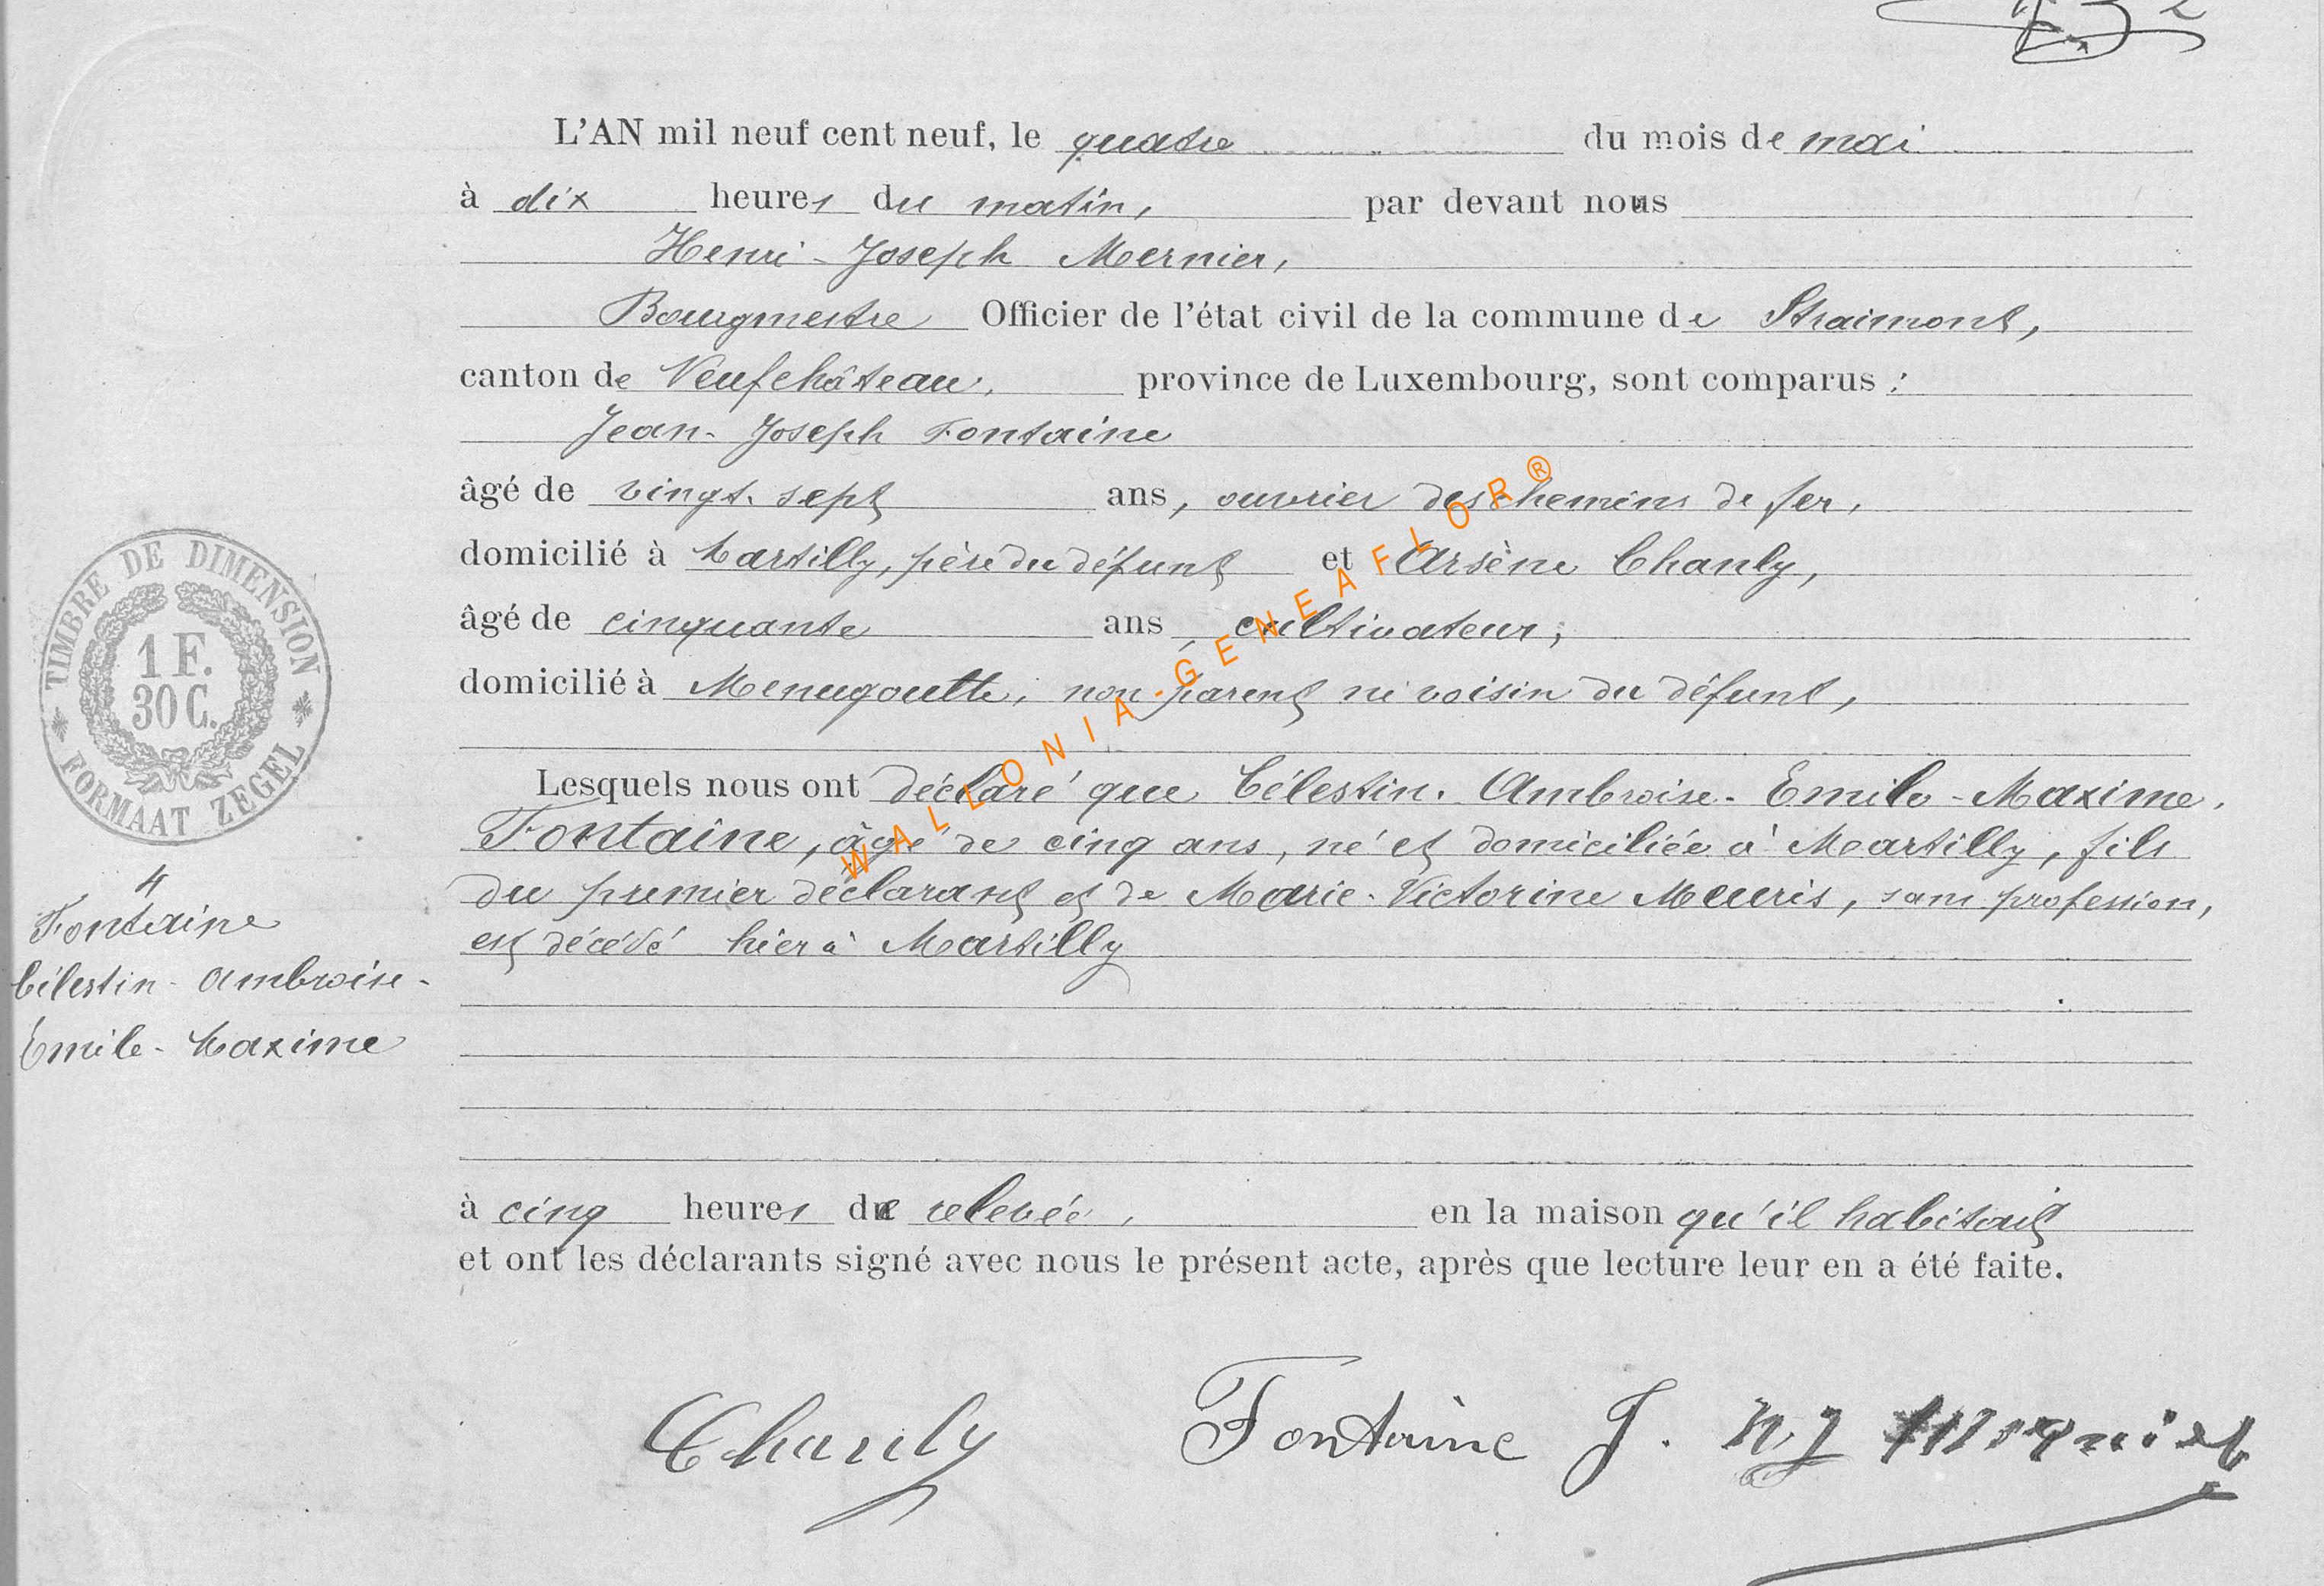 L'AN mil neuf cent neuf, le quatre du mois de mai
à dix heures du matin, par devant nous
Henri-Joseph Mernier,
Bourgmestre Officier de l'état civil de la commune de Straimont,
canton de Neufchâteau, province de Luxembourg, sont comparus :
Jean-Joseph Fontaine
âgé de vingt-sept ans, ouvrier des chemins de fer,
domicilié à Martilly, père du défunt et Arsène Chanly,
âgé de cinquante ans, cultivateur,
domicilié à Menugoutte, non parent ni voisin du défunt,
Lesquels nous ont déclaré que Célestin-Ambroise-Emile-Maxime
Fontaine, âgé de cinq ans, né et domiciliée à Martilly, fils
du premier déclarant et de Marie-Victorine Meuris, sans profession,
est décédé hier à Martilly
à cinq heures de relevée, en la maison qu'il habitait
et ont les déclarants signé avec nous le présent acte, après que lecture leur en a été faite.
Chanly Fontaine J. H.J Mernier
TIMBRE DE DIMENSION
1 F.
30 C.
FORMAAT ZEGEL
4
Fontaine
Célestin-Ambroise-
Emile-Maxime
WALLONIA-GENEAFLOR®